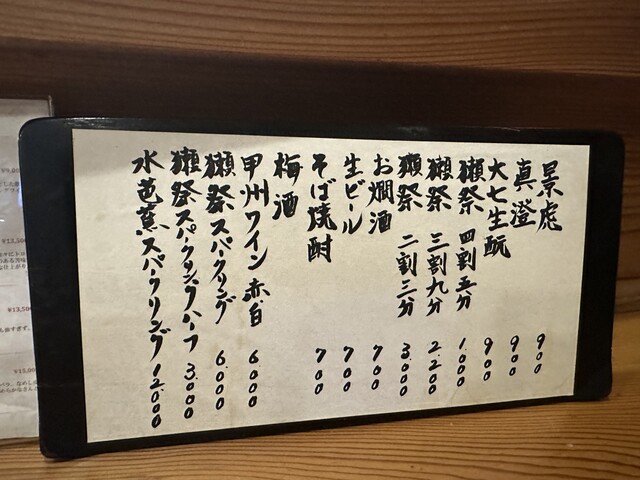 景虎 900
真澄 900
大七生酛 900
獺祭 四割五分 1.000
獺祭 三割九分 2.200
獺祭 二割三分 3.000
お燗酒 700
生ビール 700
そば焼酎 700
梅酒
甲州ワイン 赤白 6000
獺祭スパークリング 6.000
獺祭スパークリングハーフ 3.000
水芭蕉スパークリング 12.000